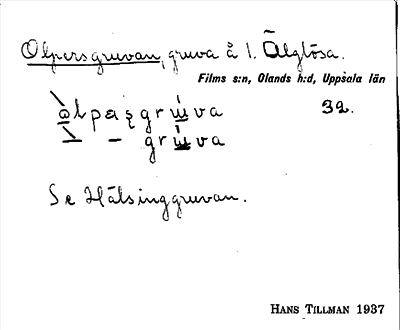 Olpersgruvan, gruva å l. Älgtösa.
Films s:n, Olands h:d, Uppsala län
32.
— gruva
Se Hälsinggruvan.
HANS TILLMAN 1937